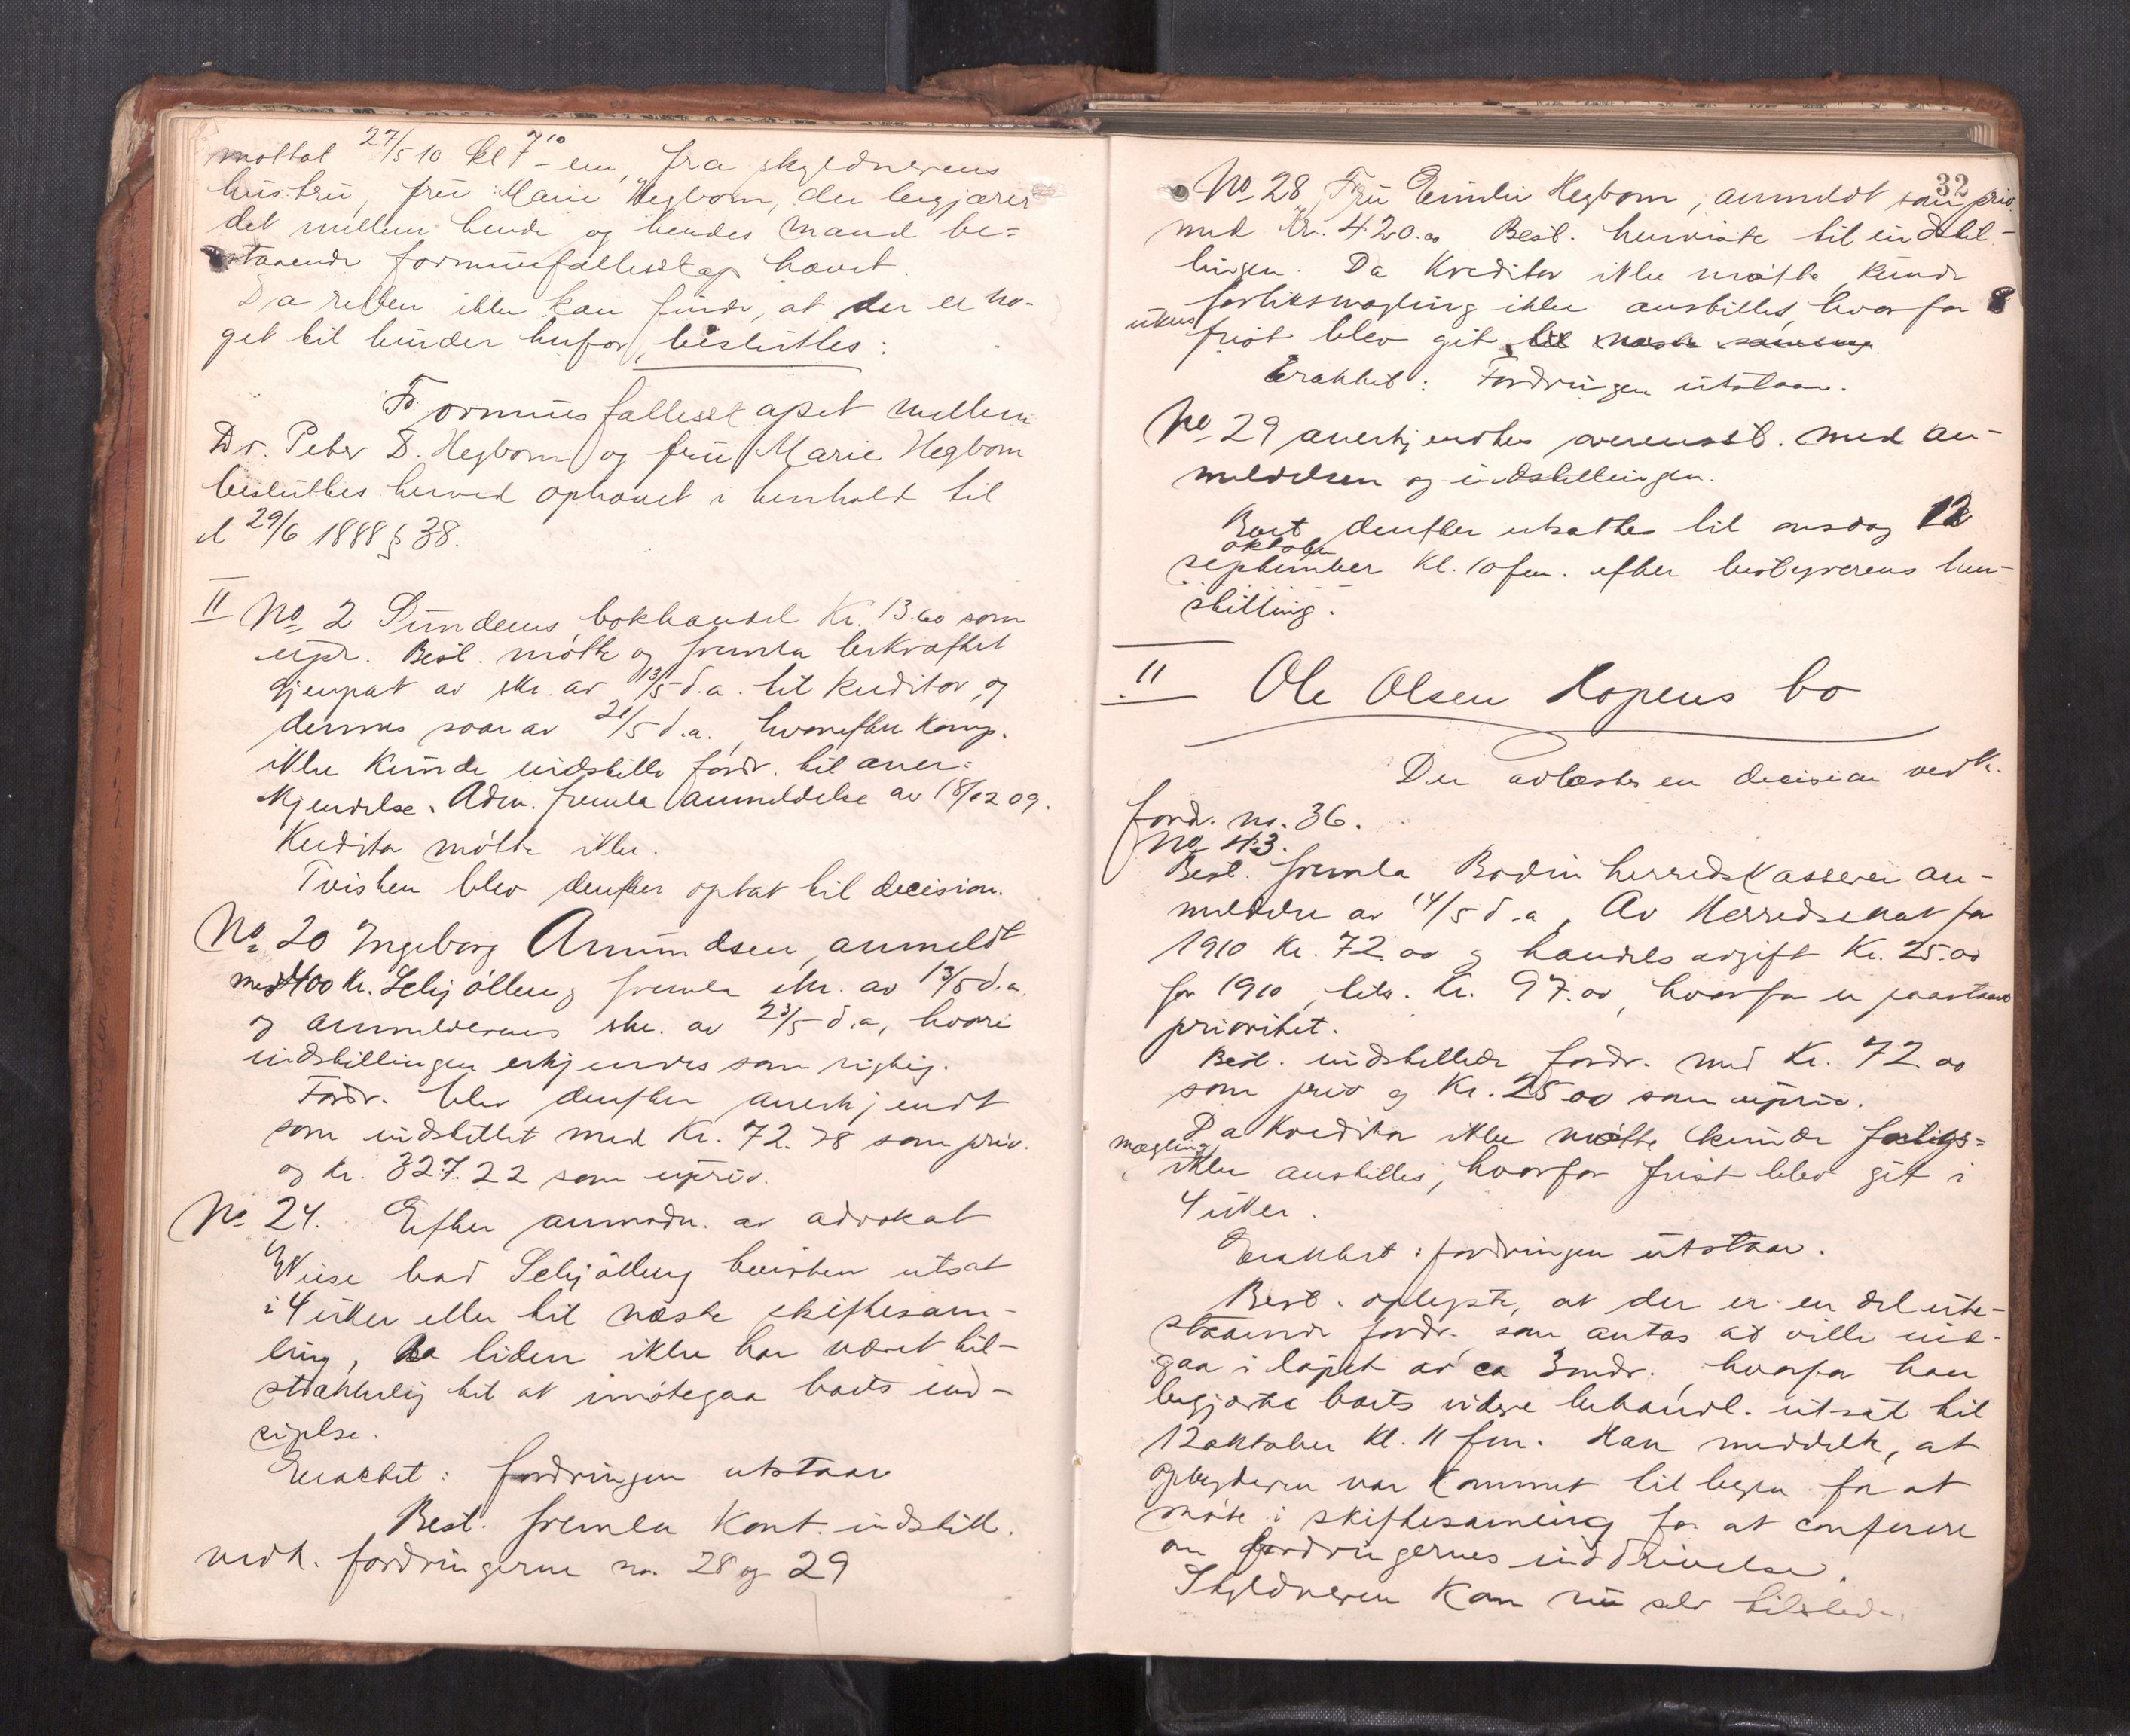 mottat 27/5 10 kl 7 10 em, fra skyldnerens
hustru, fru Marie Hegbom, der begjærer
det mellem hende og hendes mand be=
staaende formuesfællesskap hævet.
Da retten ikke kan finde, at der er no-
get til hinder herfor, besluttes:
Formuesfællesskapet mellem
Dr. Peter D. Hegbom og fru Marie Hegbom
besluttes herved ophævet i henhold til
l 29/6 1888 § 38.
II No 2 Sundems bokhandel Kr. 13.60 som
upr. Best. møtte og fremla bekræftet
gjenpat av skr. av 13/5 d.a. til kreditor og
dennes svar av 21/5 d.a., hvorefter komp.
ikke kunde indstille fordr. til aner=
kjendelse. Adm. fremla anmeldelse av 18/12 09.
Kreditor møtte ikke.
Tvisten blev derefter optat til decision.
No. 20 Ingeborg Amundsen, anmeldt
med 400 kr. Schjølberg fremla skr. av 13/5 d.a.
og anmelderens skr. av 23/5 d.a, hvori
indstillingen erkjendes som rigtig.
Fordr. blev derefter anerkjendt
som indstillet med Kr. 72.78 som priv.
og kr. 327.22 som upriv.
No 24. Efter anmodn. av advokat
Wiese bad Schjølberg tvisten utsat
i 4 uker eller til næste skiftesam-
ling, da tiden ikke har været til-
strækkelig til at imøtegaa boets ind-
sigelse.
Eragtet: fordringen utstaar
Best. fremla kont. indstill.
vedk. fordringerne no. 28 og 29
32
No 28 Fru Emilie Hegbom, anmeldt som priv.
med Kr. 420.00 Best. henviste til indstil-
lingen. Da kreditor ikke møtte, kunde
forliksmægling ikke anstilles, hvorfor 8
ukers frist blev git til næste samling
Eraktet: Fordringen utstaar.
No 29 anerkjendtes overensst. med an-
meldelsen og indstillingen.
Boet derefter utsattes til onsdag 12
oktober
september kl. 10 fm. efter bestyrerens hen-
stilling.
II Ole Olsen Kopens bo
Der avlæstes en decision vedk.
fordr. no. 36.
No 43.
Best. fremla Bodin herredskasserer an-
meldelse av 14/5 d.a, Av Herredsskat for
1910 Kr. 72.00 og handelsavgift Kr. 25.00
for 1910, tils. kr. 97.00, hvorfor er paastaaet
prioritet.
Best. indstillede fordr. med kr. 72.00
som priv og Kr. 25.00 som upriv.
Da kreditor ikke møtte kunde forligs=
mægling
ikke anstilles, hvorfor frist blev git i
4 uker.
Eraktet: fordringen utstaar.
Best. oplyste, at der er en del ute-
staaende fordr. som antas at ville ind-
gaa i løpet av ca 3 mdr., hvorfor han
begjærte boets videre behandl. utsat til
12 oktober kl. 11 fm. Han meddelte, at
opbyderen var kommet til byen for at
møte i skiftesamling for at conferere
om fordringernes inddrivelse.
Skyldneren kom nu selv tilstede.